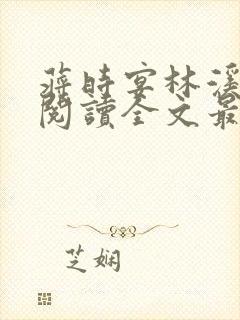 蔣時宴林溪
閱讀全文最
芝嫻